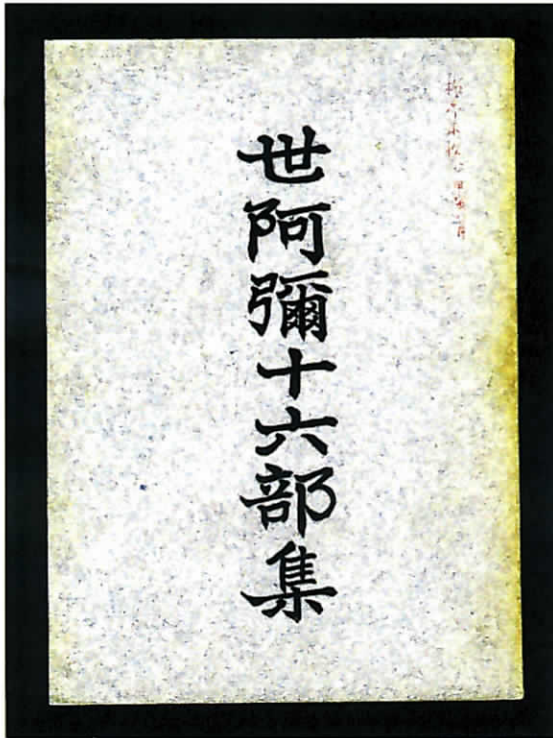 世阿彌十六部集